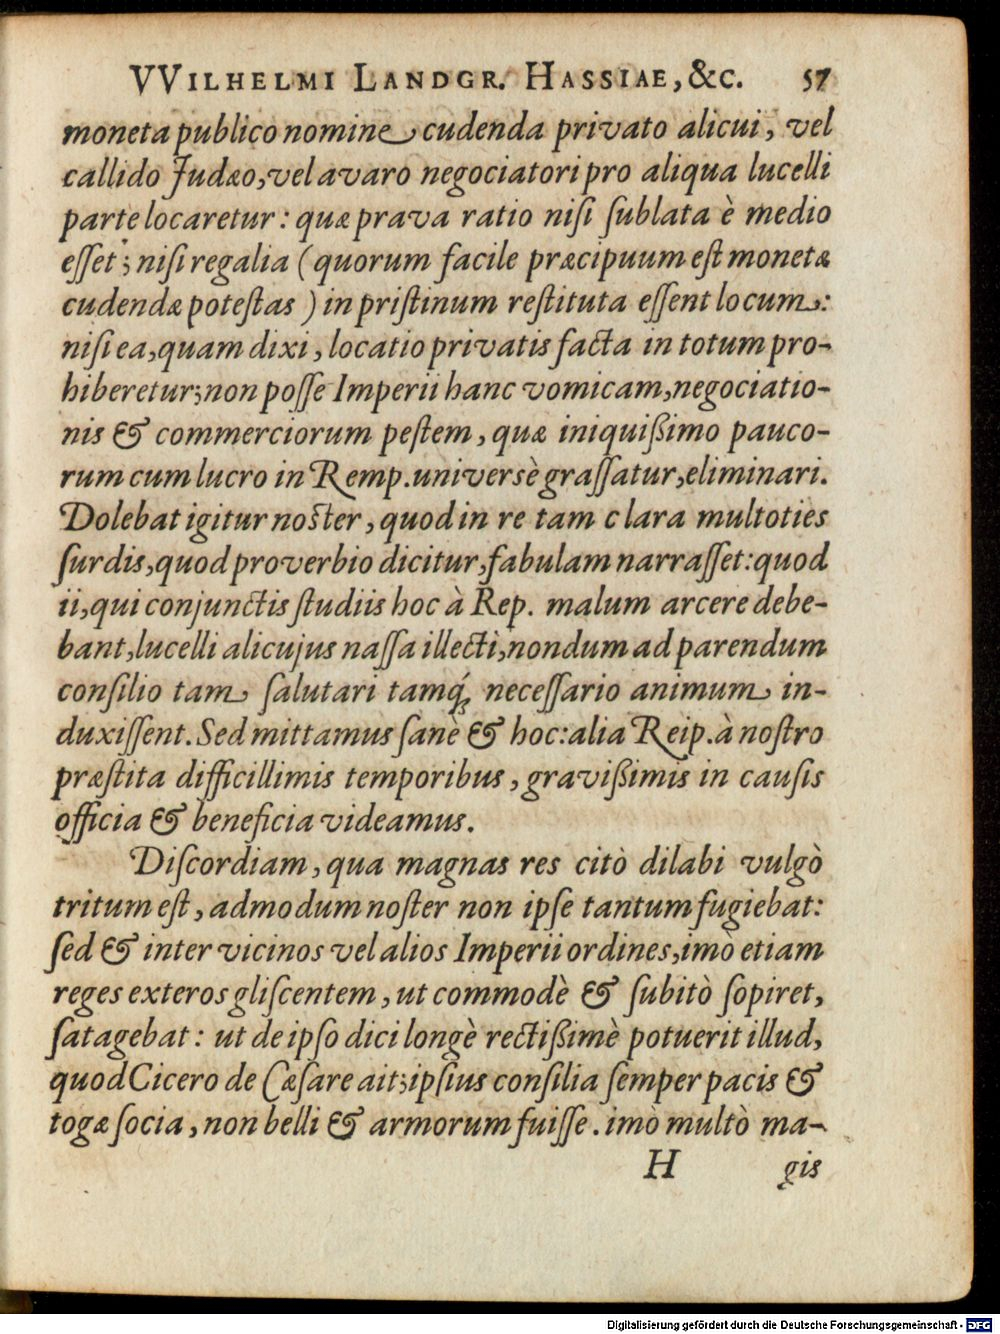 VVILHELMI LANDGR. HASSIAE, &C. 57
moneta publico nomine cudenda privato alicui, vel
callido Judæo, vel avaro negociatori pro aliqua lucelli
parte locaretur: quæ prava ratio niſi ſublata è medio
eſſet; niſi regalia (quorum facile præcipuum eſt monetæ
cudendæ poteſtas) in priſtinum reſtituta eſſent locum:
niſi ea, quam dixi, locatio privatis facta in totum pro-
hiberetur; non poſſe Imperii hanc vomicam, negociatio-
nis & commerciorum peſtem, quæ iniquißimo pauco-
rum cum lucro in Remp. universè graſſatur, eliminari.
Dolebat igitur noster, quod in re tam clara multoties
ſurdis, quod proverbio dicitur, fabulam narraſſet: quod
ii, qui conjunctis ſtudiis hoc à Rep. malum arcere debe-
bant, lucelli alicujus naſſa illecti, nondum ad parendum
conſilio tam ſalutari tamq́; neceſſario animum in-
duxiſſent. Sed mittamus ſanè & hoc: alia Reip. à noſtro
præſtita difficillimis temporibus, gravißimis in cauſis
officia & beneficia videamus.
Diſcordiam, qua magnas res citò dilabi vulgò
tritum eſt, admodum noſter non ipſe tantum fugiebat:
ſed & inter vicinos vel alios Imperii ordines, imò etiam
reges exteros gliſcentem, ut commodè & ſubitò ſopiret,
ſatagebat: ut de ipſo dici longè rectißimè potuerit illud,
quod Cicero de Cæſare ait; ipſius conſilia ſemper pacis &
togæ ſocia, non belli & armorum fuiſſe. imò multò ma-
H gis
Digitalisierung gefördert durch die Deutsche Forschungsgemeinschaft - DFG